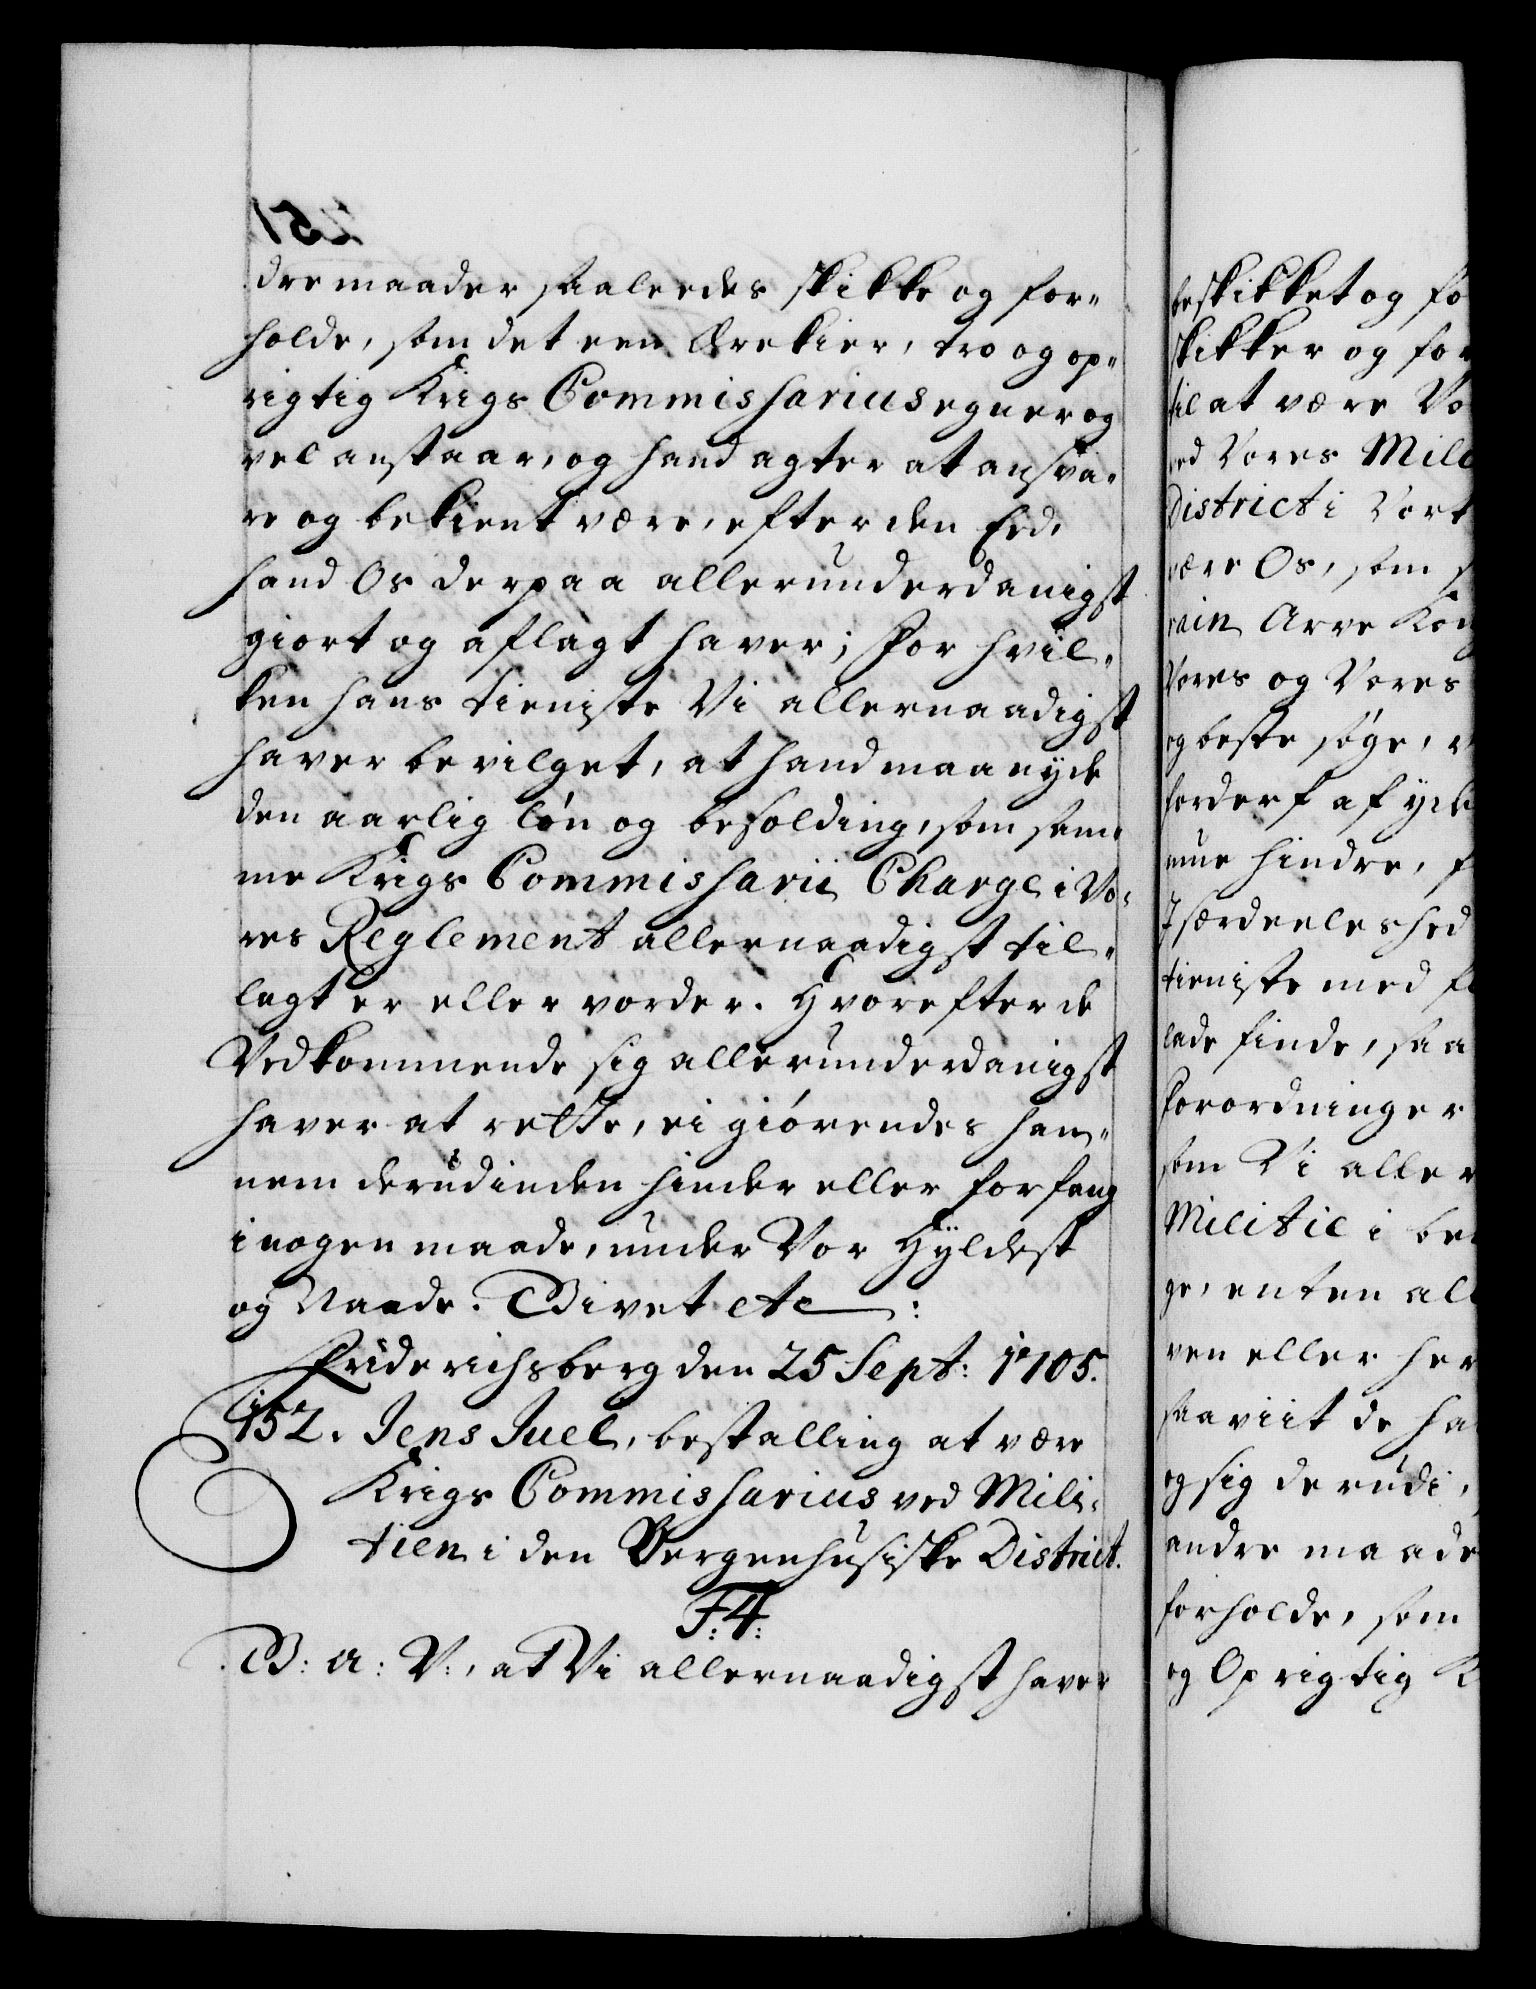 dre maader saaleedes skikke og for-
holde, som det een Ærekier, tro og op-
rigtig Krigs Commissarius egner og
vel anstaar, og hand agter at ansva-
re og bekient være, efter den Eed,
hand Os derpaa allerunderdanigst
giort og aflagt haver; For hvil-
ken hans tieniste Vi allernaadigst
haver bevilget, at hand maa nyde
den aarlig løn og besolding, som sam-
me Krigs Commissarii Charge i Vo-
res Reglement allernaadigst til-
lagt er eller vorder. Hvorefter de
Vedkommende sig allerunderdanigst
haver at rette, ei giørendes han-
nem derudinden hinder eller forfang
i nogen maade, under Vor Hyldest
og Naade. Givet etc:
Friderichsberg den 25 Sept: 1705.
152. Jens Juel, bestalling at være
Krigs Commissarius ved Mili-
tien i den Bergenhusiske District.
F:4:
G: A: V:, at Vi allernaadigst haver
beskikket og fo
skikker og for
til at være Vo
ved Vores Mili
District i Vort
være Os, som
rain Arve Kon
Vores og Vores
og beste søge,
forderf af yd
mue hindre, f
Isærdeeleshed
tieniste med fl
lade finde, saa
Forordninger
som Vi aller
Militie i be
ge, enten al
ven eller her
saaviit de ha
og sig derudi,
andre maade
forholde, som
og Oprigtig K